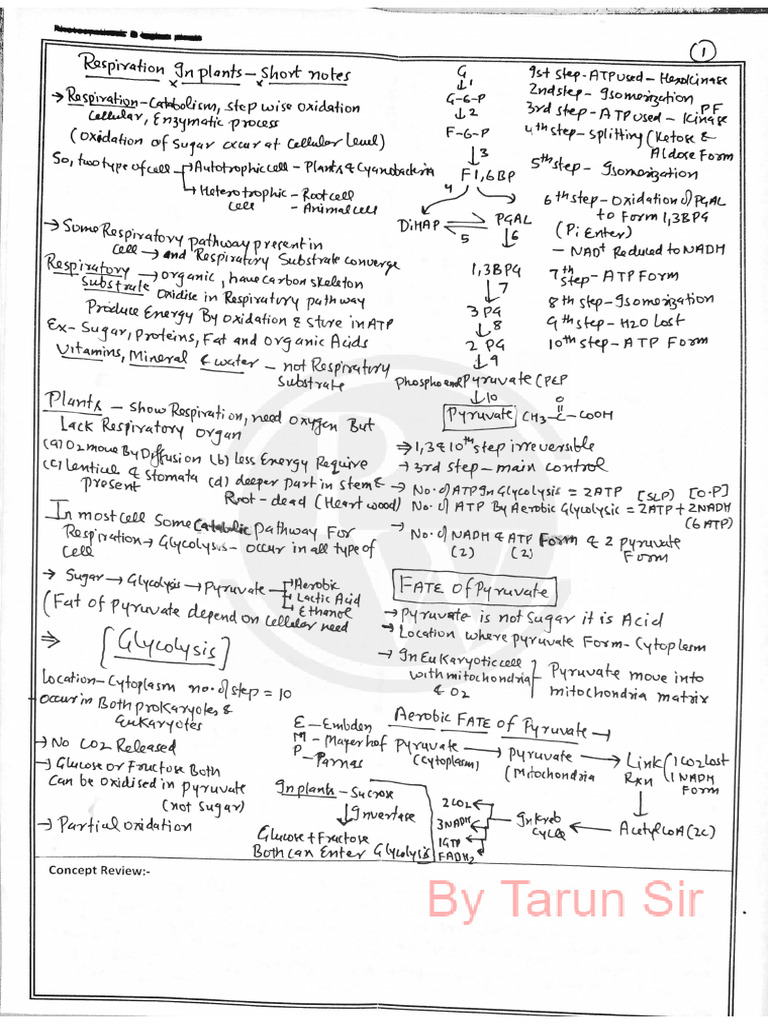 1
Respiration In plants - Short notes
→ Respiration - Catabolism, step wise oxidation
Cellular, Enzymatic process
(Oxidation of Sugar occur at Cellular Level)
So, two type of cell → Autotrophic cell - Plants & Cyanobacteria
→ Heterotrophic cell - Root cell
- Animal cell
→ Some Respiratory pathway present in
cell → and Respiratory Substrate converge
Respiratory Substrate → organic, have carbon skeleton
Oxidise in Respiratory pathway
Produce Energy By Oxidation & Store in ATP
Ex- Sugar, Proteins, Fat and Organic Acids
Vitamins, Mineral & water - not Respiratory
Substrate
Plants - Show Respiration, need oxygen But
Lack Respiratory Organ
(a) O2 move By Diffusion (b) less Energy Require
(c) Lenticel & Stomata present (d) deeper part in stem &
Root - dead (Heart wood)
In most cell Some Catabolic pathway For
Respiration → Glycolysis - occur in all type of
cell
→ Sugar → Glycolysis → Pyruvate → Aerobic
→ Lactic Acid
→ Ethanol
(Fat of pyruvate depend on cellular need
⇒ [Glycolysis]
Location - Cytoplasm no. of step = 10
- occur in Both prokaryotes &
Eukaryotes
→ No CO2 Released
→ Glucose or Fructose Both
Can be Oxidised in pyruvate
(not Sugar)
→ Partial Oxidation
E - Embden
M - Mayerhof
P - Parnas
In plants - Sucrose
↓ Invertase
Glucose + Fructose
Both can Enter Glycolysis
G
↓1
G-6-P
↓2
F-6-P
↓3
F1,6BP
4
DiHAP ⇌ PGAL
5 ↓6
1,3BPG
↓7
3 PG
↓8
2 PG
↓9
Phosphoenol Pyruvate (PEP
↓10
Pyruvate CH3-C-COOH
O
1st step - ATP used - Hexokinase
2nd step - Isomerization
3rd step - ATP used - PF Kinase
4th step - splitting (Ketose &
Aldose Form
5th step - Isomerization
6th step - Oxidation of PGAL
to Form 1,3BPG
(Pi Enter)
- NAD+ Reduced to NADH
7th step - ATP Form
8th step - Isomerization
9th step - H2O Lost
10th step - ATP Form
⇒ 1,3 & 10th step irreversible
→ 3rd step - main control
→ No. of ATP In Glycolysis = 2ATP [SLP] [O.P]
No. of ATP By Aerobic Glycolysis = 2ATP + 2NADH
(6ATP)
→ No. of NADH & ATP Form & 2 pyruvate
(2) (2) Form
FATE of Pyruvate
→ Pyruvate is not Sugar it is Acid
→ Location where pyruvate Form - Cytoplasm
→ In Eukaryotic cell
with mitochondria
& O2
Pyruvate move into
mitochondria matrix
Aerobic FATE of Pyruvate →
Pyruvate (cytoplasm) → Pyruvate (Mitochondria → Link Rxn (1CO2 Lost
1NADH Form
↓
Acetyl CoA (2C)
← In Kreb Cycle
2CO2
3NADH
1GTP
FADH2
Concept Review:-
By Tarun Sir